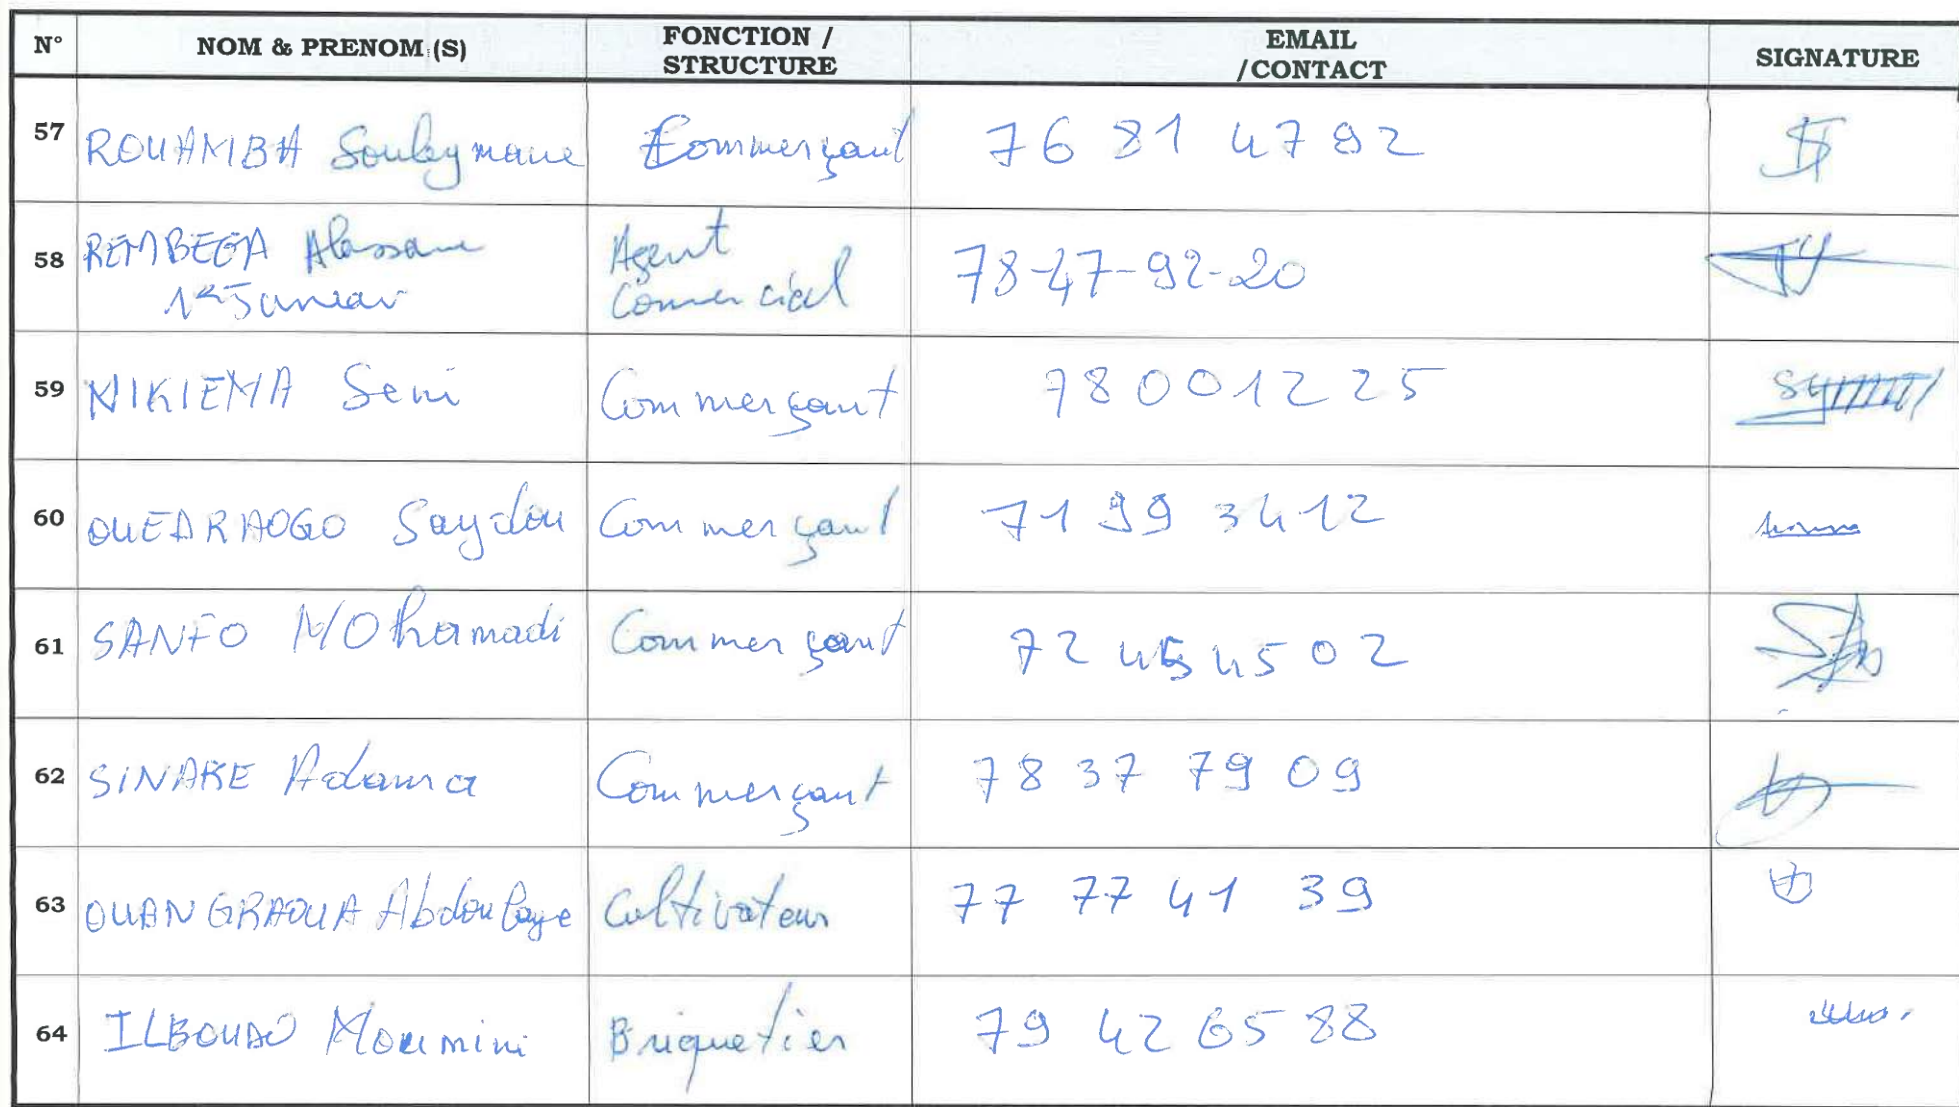 N° NOM & PRENOM (S) FONCTION / STRUCTURE EMAIL /CONTACT SIGNATURE
57 ROUAMBA Souleymane Commerçant 76 81 47 92
58 REMBEGA Alassane 1er Janvier Agent Comercial 78-47-92-20
59 NIKIEMA Seni Commerçant 78 00 12 25
60 OUEDRAOGO Saydou Commerçant 71 99 34 12
61 SANFO MOhamadi Commerçant 72 45 45 02
62 SINARE Adama Commerçant 78 37 79 09
63 OUANGRAOUA Abdoulaye Cultivateur 77 77 41 39
64 ILBOUDO Moumini Briquetier 79 42 65 88